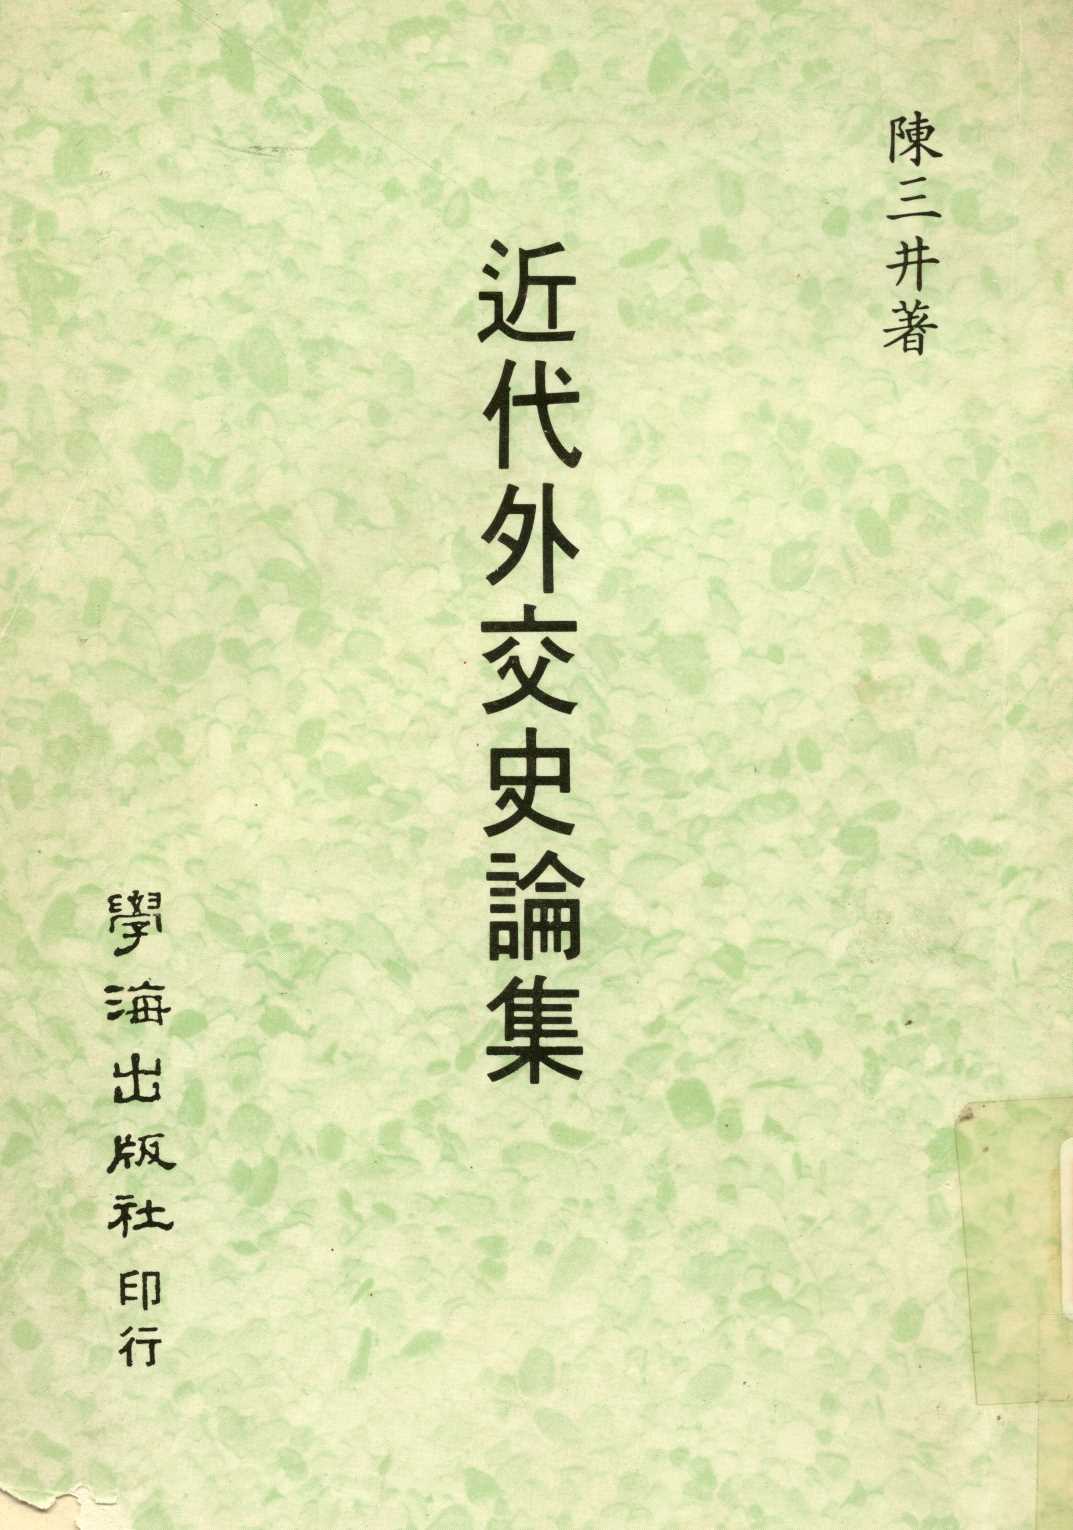 陳三井著
近代外交史論集
學海出版社印行